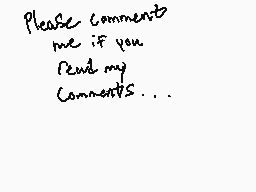 Please comment
me if you
read my
comments...